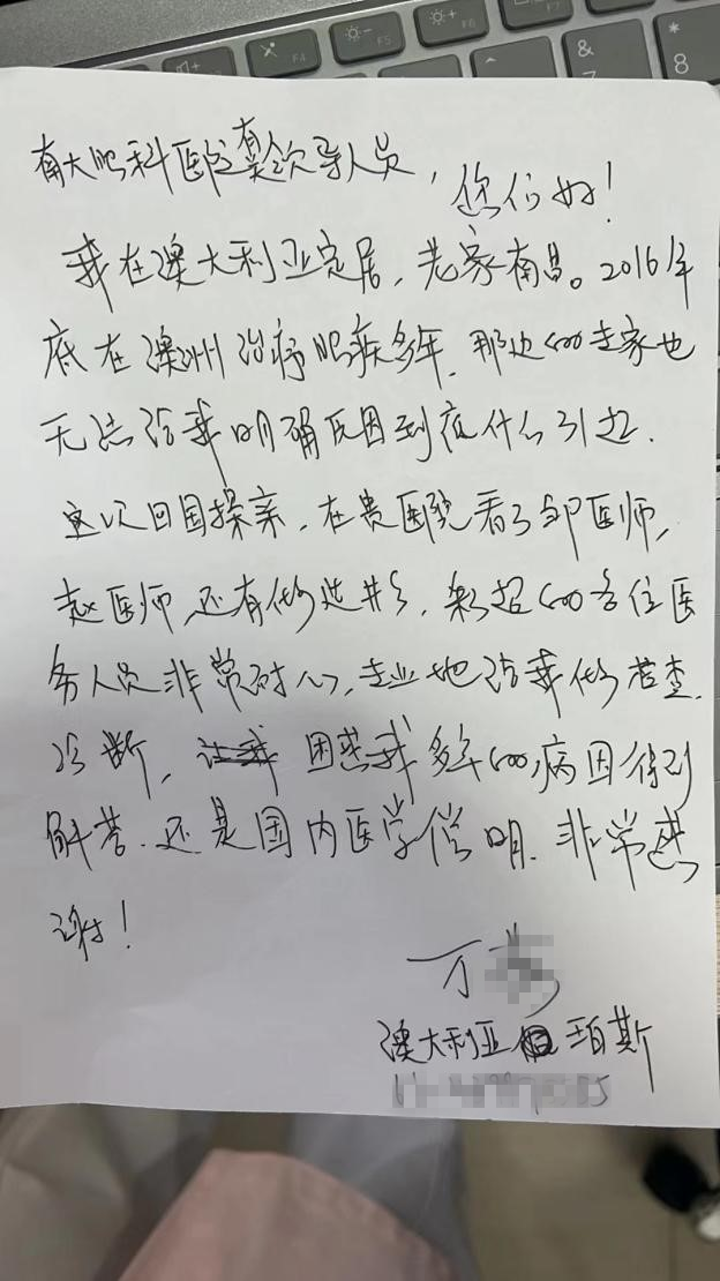 南大眼科医院有关领导人员,
您们好!
我在澳大利亚定居,老家南昌。2016年
底在澳洲治疗眼疾多年.那边的专家也
无法给我明确原因到底什么引起.
这次回国探亲.在贵医院看了邹医师,
赵医师,还有做造影.彩超的各位医
务人员非常耐心,专业地给我做检查.
诊断,困惑我多年的病因得到
解答.还是国内医学高明.非常感
谢!
万
澳大利亚 珀斯
F4
F5
F6
&
7
*
8